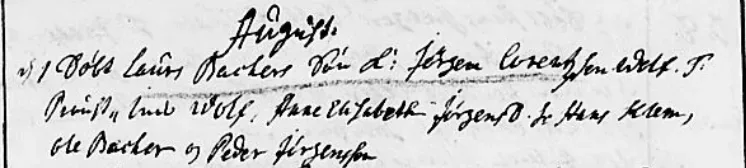 August.
d. 1 Döbt Laurs Backers Sön k: Jörgen Lorentzsen Wolf. T:
Lind Wolf, Anne Elisabeth Jörgens D. Hr Hans Klem,
Ole Backer og Peder Jörgensen